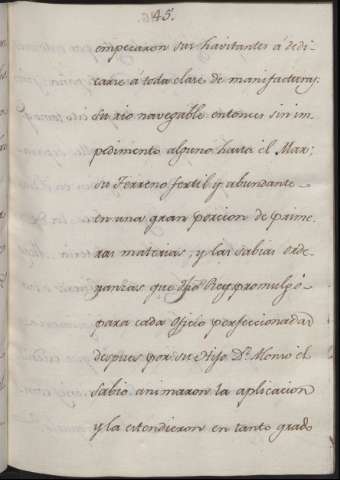 45.
empezaron sus havitantes á dedi-
carse á toda clase de manifacturas.
su rio navegable entonces sin im-
pedimento alguno hasta el Mar;
su Terreno fertil y abundante
en una gran porcion de prime-
ras materias, y las sabias orde-
nanzas que dho Rey promulgó
para cada oficio perfeccionadas
despues por su Hijo Dn. Alonso el
sabio animaron la aplicacion
y la estendieron en tanto grado